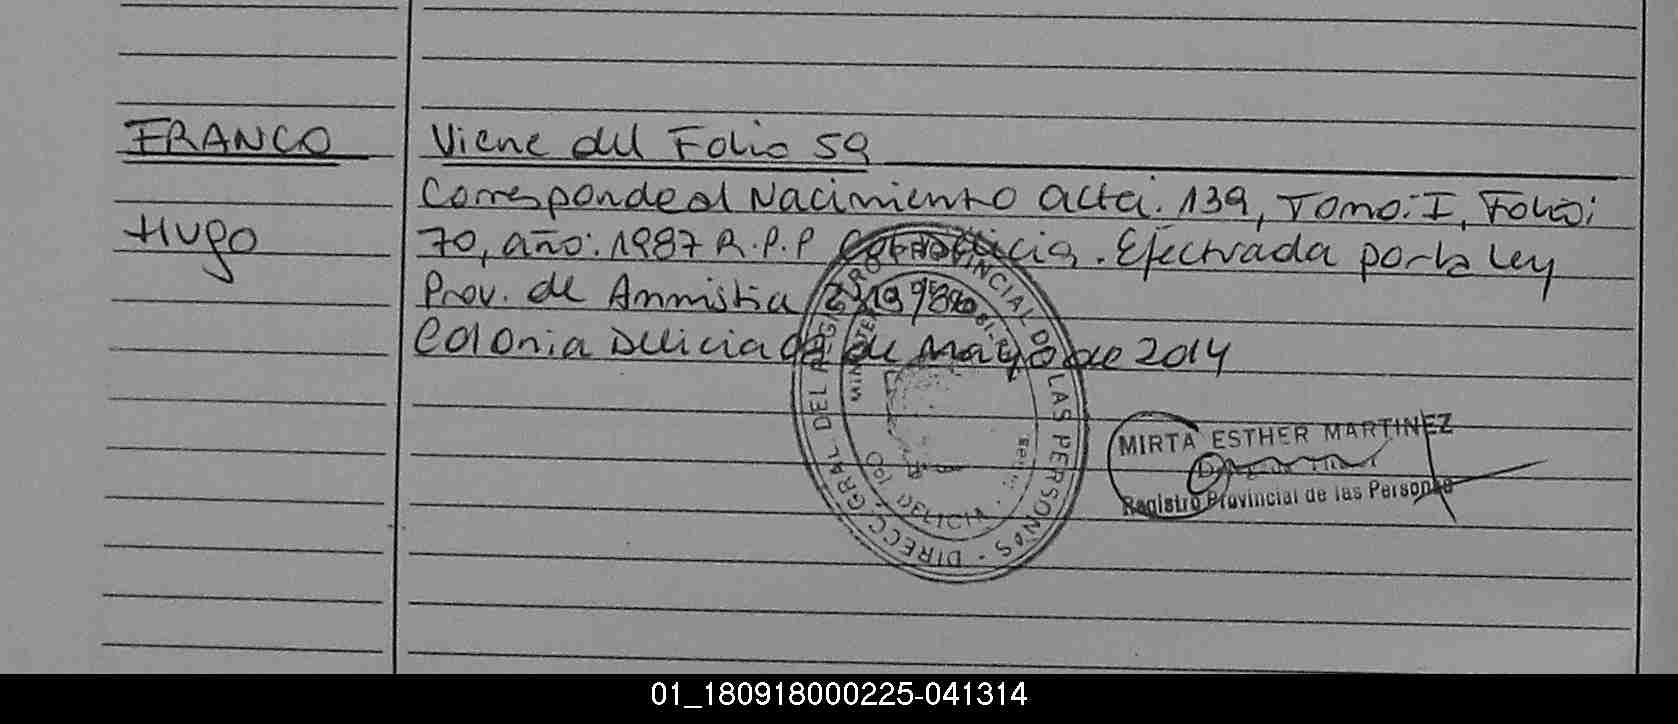 FRANCO
Viene del Folio 59
Corresponde al Nacimiento acta: 139, Tomo: I, Folio:
Hugo
70, año: 1987 R.P.P Col. Delicia. Efectuada por la Ley
Prov. de Amnistia
Colonia Delicia de Mayo de 2014
DIRECC. GRAL. DEL REGISTRO PROVINCIAL DE LAS PERSONAS
DELICIA
MIRTA ESTHER MARTINEZ
Registro Provincial de las Personas
01_180918000225-041314